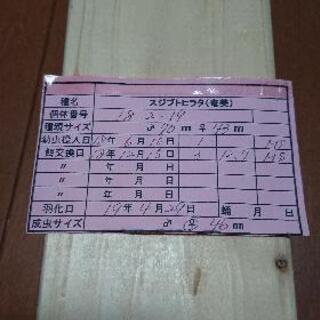 種名 スジブトヒラタ(奄美)
個体番号 18 2-19
種親サイズ ♂70m ♀43m
幼虫投入日 18年6月16日 1
餌交換日 18年12月15日 2
〃 年 月 日
〃 年 月 日
〃 年 月 日
羽化日 19年4月29日 蛹 月 日
成虫サイズ ♂ ♀ 46m